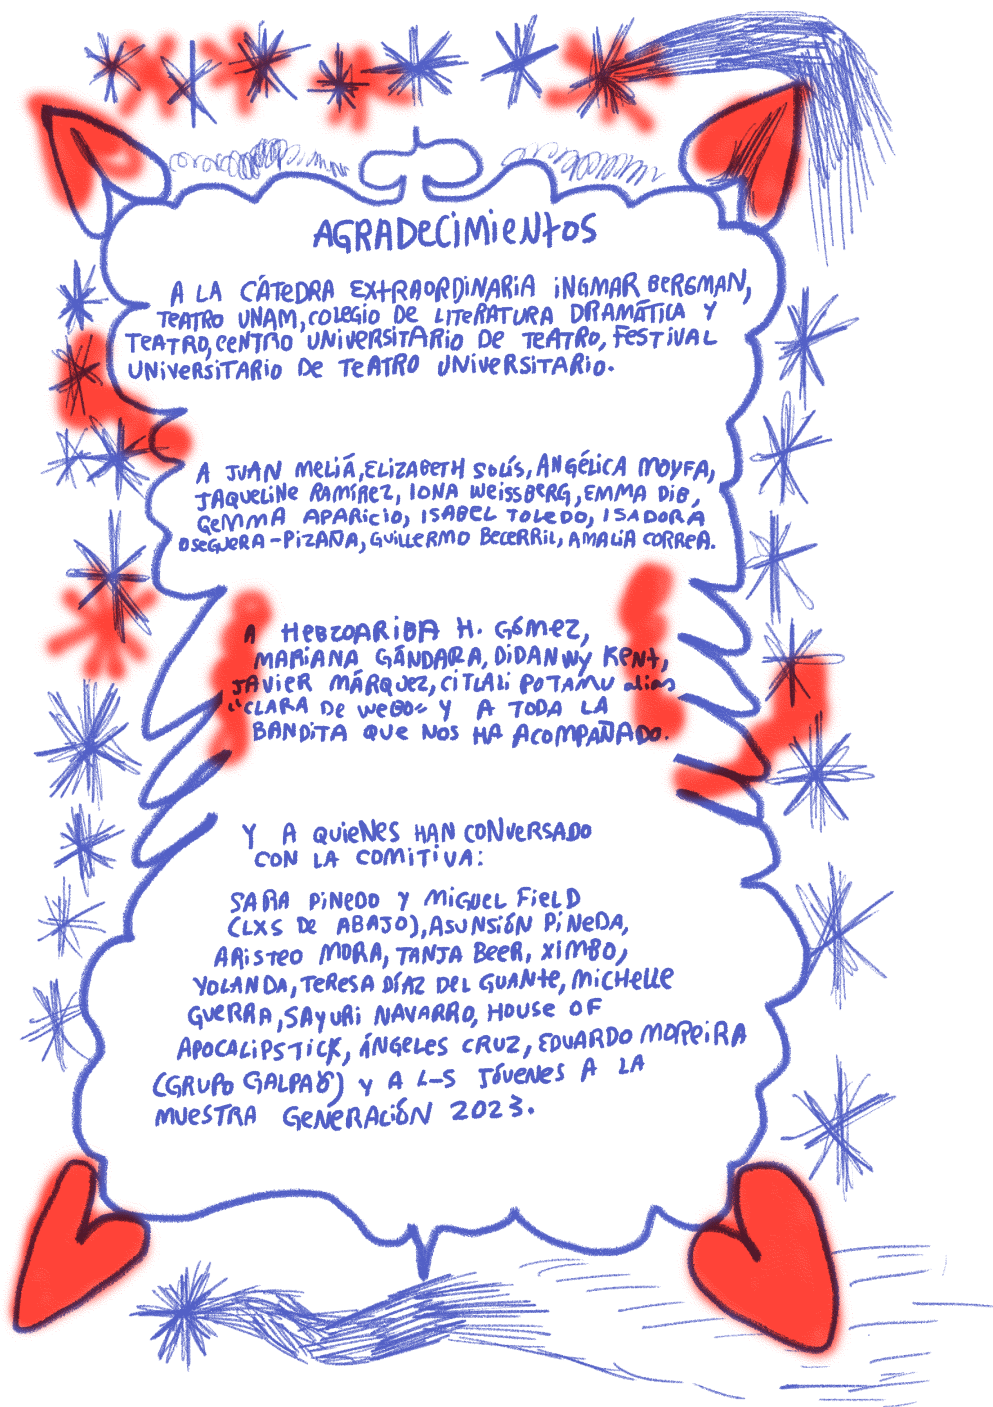 AGRADECIMIENTOS
A LA CÁTEDRA EXTRAORDINARIA INGMAR BERGMAN,
TEATRO UNAM, COLEGIO DE LITERATURA DRAMÁTICA Y
TEATRO, CENTRO UNIVERSITARIO DE TEATRO, FESTIVAL
UNIVERSITARIO DE TEATRO UNIVERSITARIO.
A JUAN MELIÁ, ELIZABETH SOLÍS, ANGÉLICA MOYFA,
JAQUELINE RAMÍREZ, IONA WEISSBERG, EMMA DIB,
GEMMA APARICIO, ISABEL TOLEDO, ISADORA
OSEGUERA-PIZAÑA, GUILLERMO BECERRIL, AMALIA CORREA.
A HEBZOARIBA H. GÓMEZ,
MARIANA GÁNDARA, DIDANWY KENT,
JAVIER MÁRQUEZ, CITLALI POTAMU alias
"CLARA DE WEBO" Y A TODA LA
BANDITA QUE NOS HA ACOMPAÑADO.
Y A QUIENES HAN CONVERSADO
CON LA COMITIVA:
SARA PINEDO Y MIGUEL FIELD
(LXS DE ABAJO), ASUNSIÓN PINEDA,
ARISTEO MORA, TANJA BEER, XIMBO,
YOLANDA, TERESA DÍAZ DEL GUANTE, MICHELLE
GUERRA, SAYURI NAVARRO, HOUSE OF
APOCALIPSTICK, ÁNGELES CRUZ, EDUARDO MOREIRA
(GRUPO GALPAÕ) Y A L-S JÓVENES A LA
MUESTRA GENERACIÓN 2023.